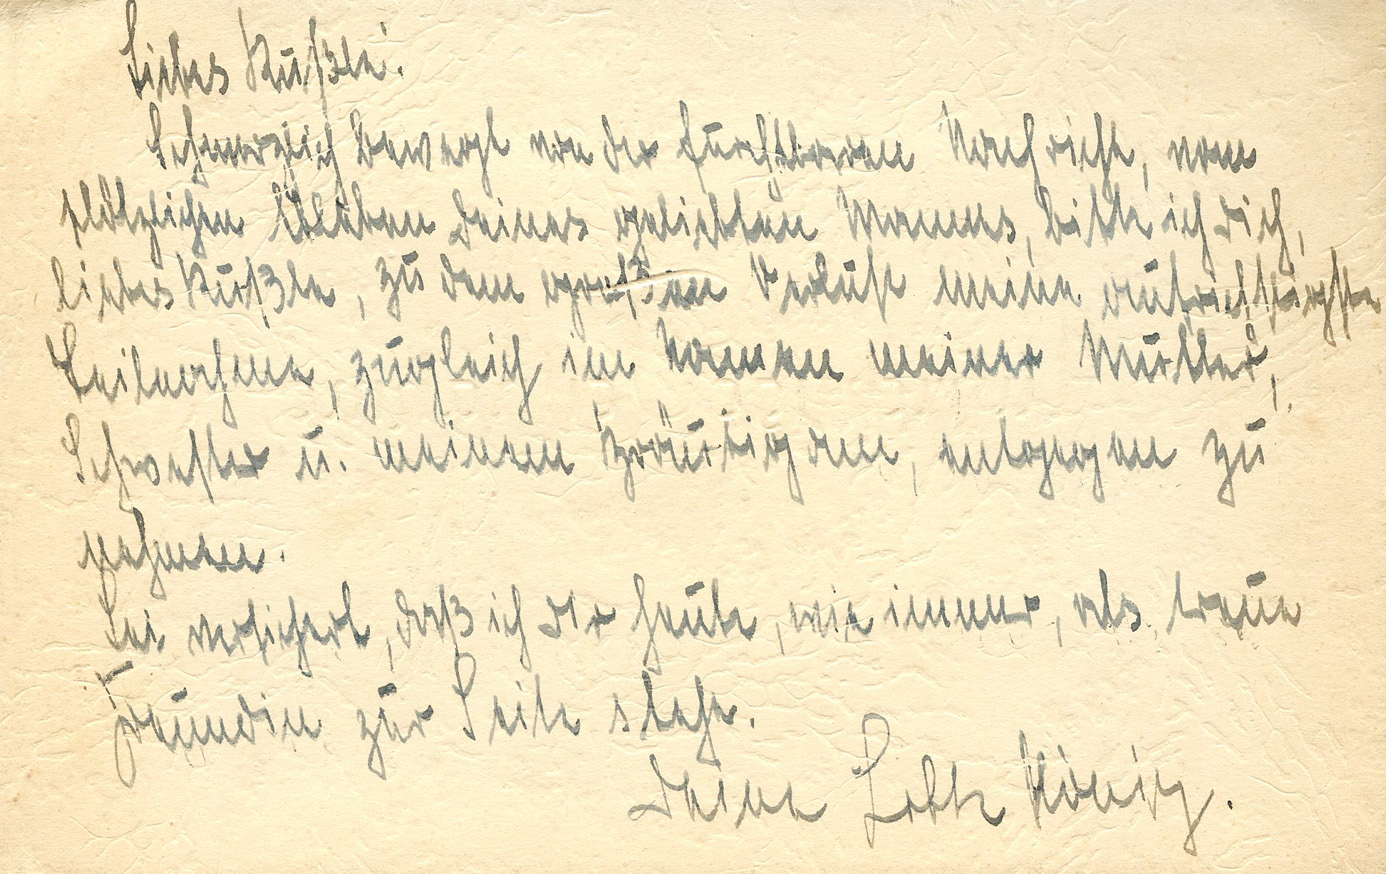 Liebes Rußle!
Schmerzlich bewegt von der furchtbaren Nachricht, vom
plötzlichen Ableben Deines geliebten Mannes, bitte ich Dich,
liebes Rußle, zu dem großen Verlust meine aufrichtigste
Teilnahme, zugleich im Namen meiner Mutter,
Schwester u. meinem Bräutigam, entgegen zu
nehmen.
Sei versichert, daß ich Dir heute, wie immer, als treue
Freundin zur Seite stehe.
Deine Lotte König.